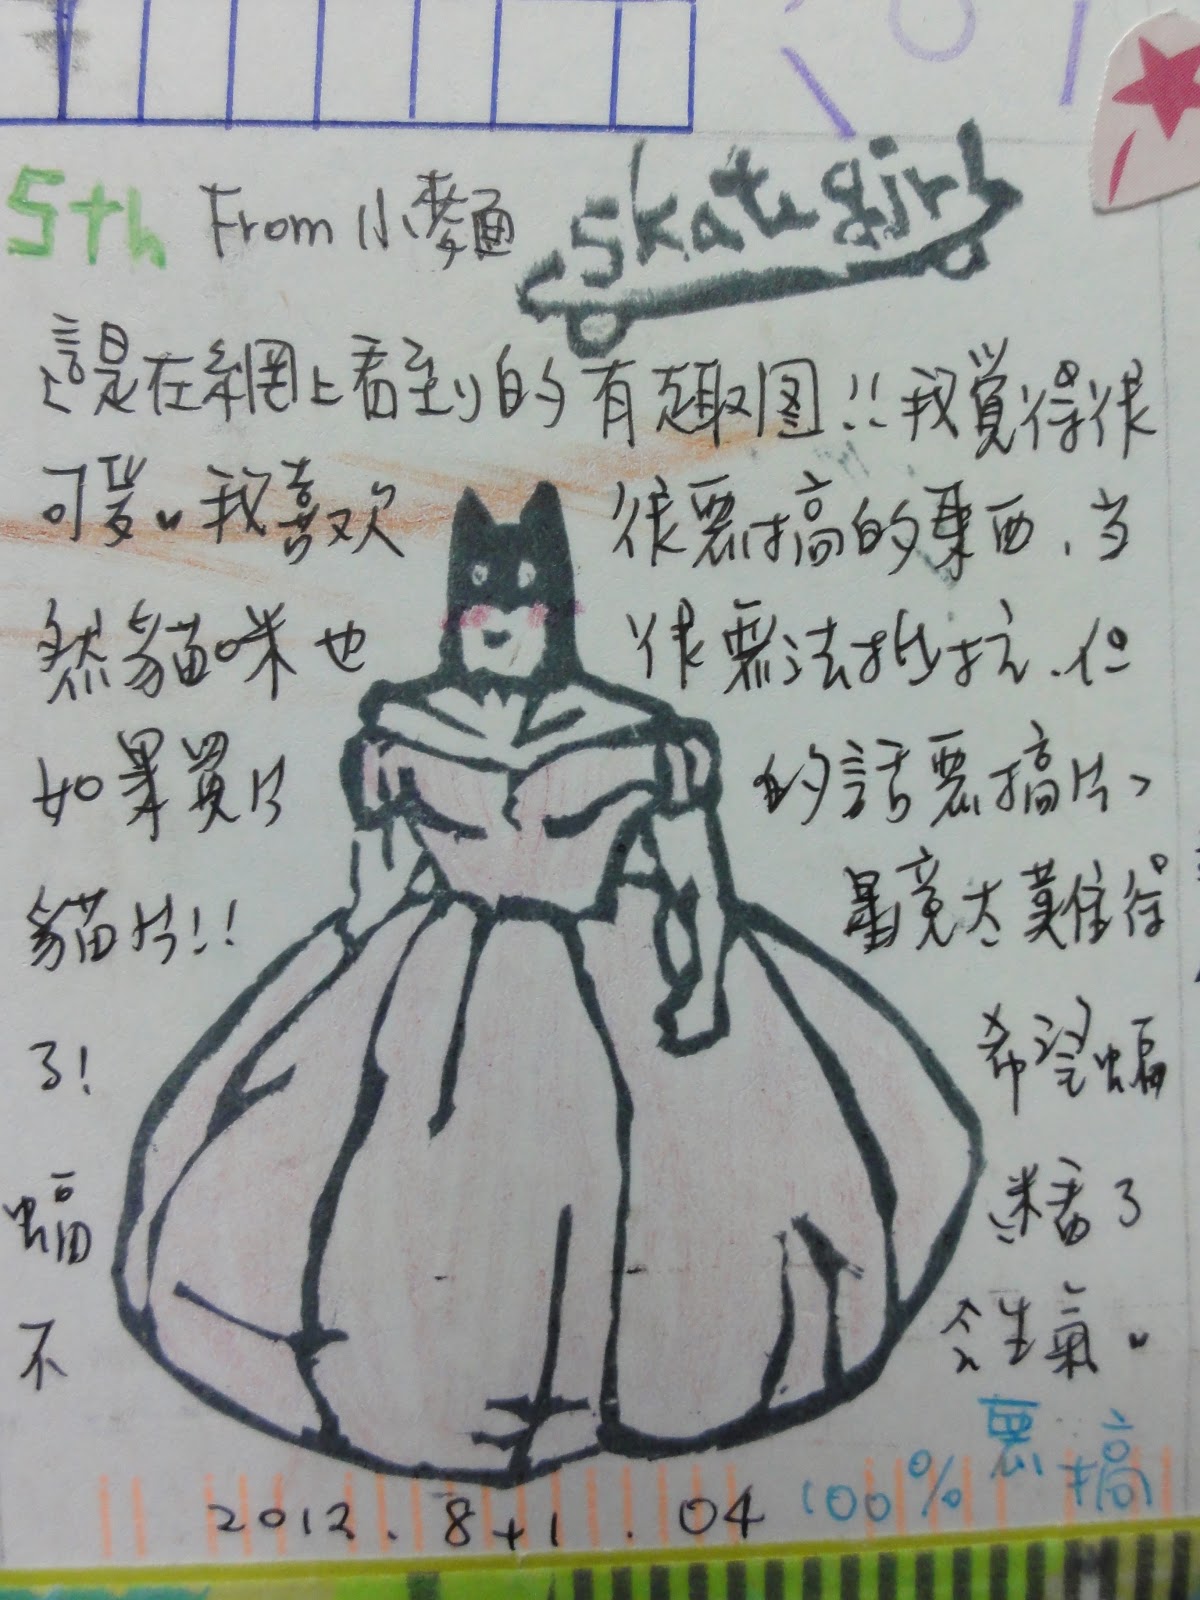 5th From 小麥面 skate girl
這是在網上看到的有趣图!!我覺得很
可愛。我喜欢很惡搞的東西、当
然貓咪也很無法抵抗、但
如果買片的話惡搞片、
貓片!! 畢竟太難得
了! 希望蝙
蝠迷看了
不会生氣。
100%惡搞
2012.8+1.04